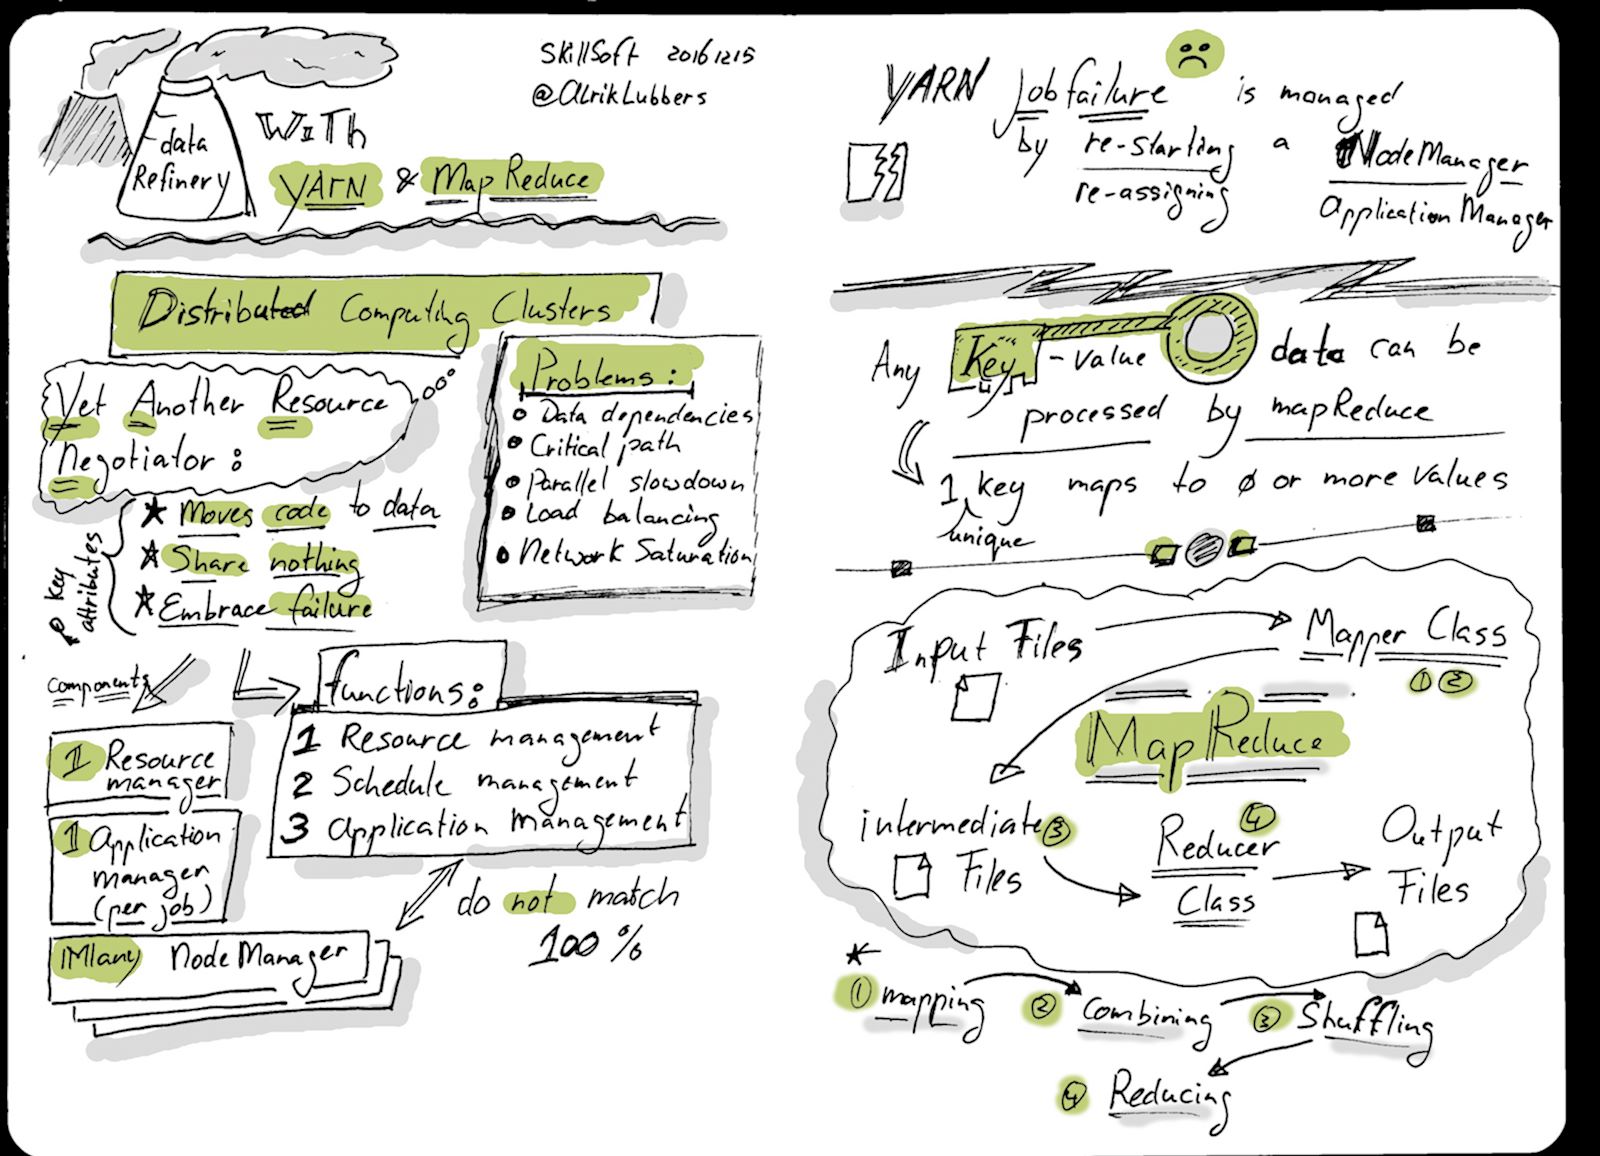 data
Refinery
With
YARN & MapReduce
SkillSoft 20161215
@AlrikLubbers
Distributed Computing Clusters
Yet Another Resource
Negotiator:
Problems:
Data dependencies
Critical path
Parallel slowdown
Load balancing
Network Saturation
Key
attributes
Moves code to data
Share nothing
Embrace failure
components
1 Resource
manager
1 Application
manager
(per job)
[M]any NodeManager
functions:
1 Resource management
2 Schedule management
3 Application management
do not match
100 %
YARN Job failure is managed
by re-starting a NodeManager
re-assigning Application Manager
Any Key-value data can be
processed by mapReduce
1 key maps to ø or more values
unique
Input Files
Mapper Class
1 2
MapReduce
intermediate 3
Files
4
Reducer
Class
Output
Files
1 mapping
2 Combining
3 Shuffling
4 Reducing